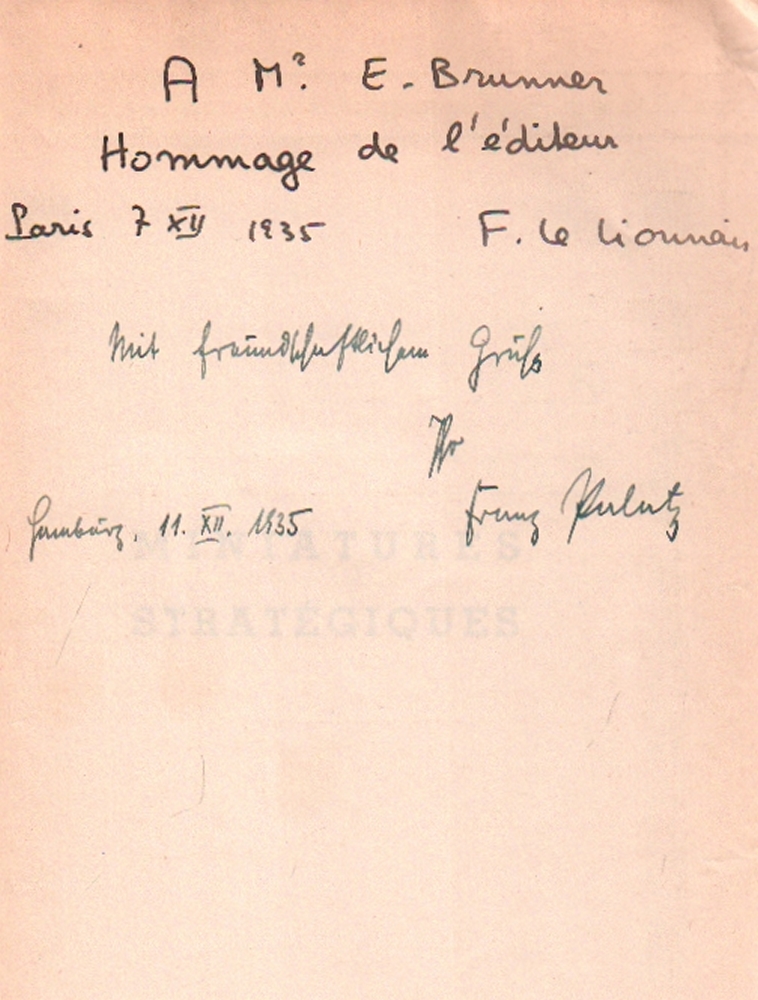 A Mr. E. Brunner
Hommage de l'éditeur
Paris 7 XII 1935 F. Le Lionnais
Mit freundschaftlichem Gruß
Ihr
Franz Palatz
Hamburg, 11. XII. 1935
MINIATURES
STRATÉGIQUES